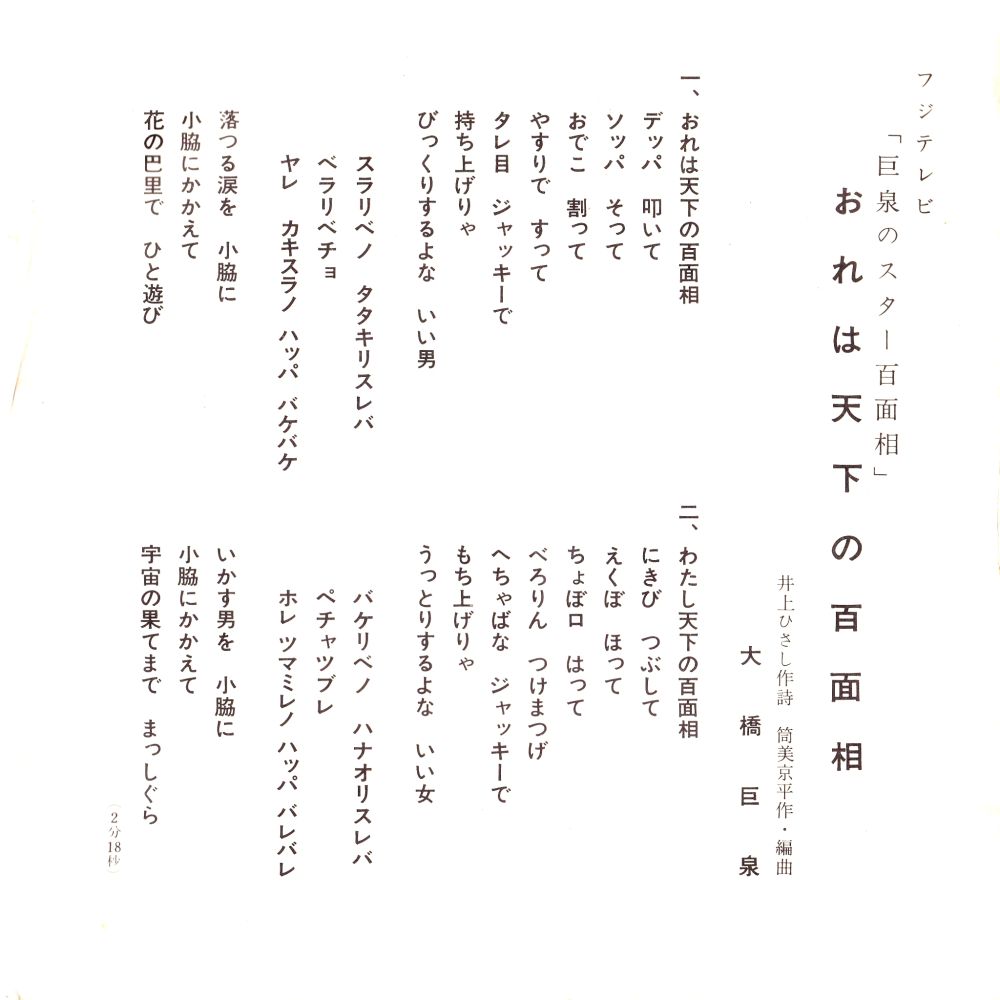 フジテレビ
「巨泉のスター百面相」
おれは天下の百面相
井上ひさし作詩　筒美京平作・編曲
大橋巨泉
一、おれは天下の百面相
デッパ　叩いて
ソッパ　そって
おでこ　割って
やすりで　すって
タレ目　ジャッキーで
持ち上げりゃ
びっくりするよな　いい男
スラリベノ　タタキリスレバ
ベラリベチョ
ヤレ　カキスラノ　ハッパ　バケバケ
落つる涙を　小脇に
小脇にかかえて
花の巴里で　ひと遊び
二、わたし天下の百面相
にきび　つぶして
えくぼ　ほって
ちょぼ口　はって
べろりん　つけまつげ
へちゃばな　ジャッキーで
もち上げりゃ
うっとりするよな　いい女
バケリベノ　ハナオリスレバ
ペチャツブレ
ホレ　ツマミレノ　ハッパ　バレバレ
いかす男を　小脇に
小脇にかかえて
宇宙の果てまで　まっしぐら
（2分18秒）